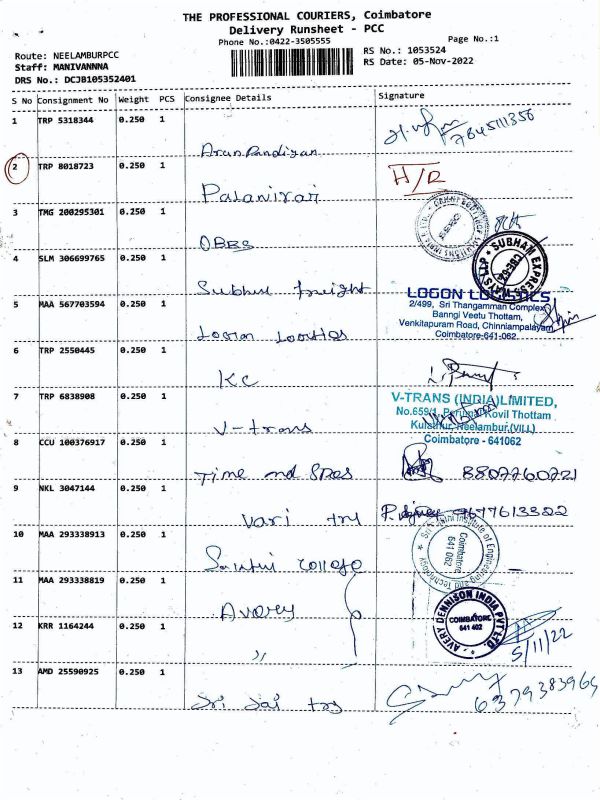 THE PROFESSIONAL COURIERS, Coimbatore
Delivery Runsheet - PCC
Phone No.:0422-3505555
Page No.:1
Route: NEELAMBURPCC
RS No.: 1053524
Staff: MANIVANNNA
RS Date: 05-Nov-2022
DRS No.: DCJB105352401
S No Consignment No Weight PCS Consignee Details Signature
1 TRP 5318344 0.250 1
Arun Pandiyan 7845111356
2 TRP 8018723 0.250 1 H/R
Palanivai
3 TMG 200295301 0.250 1
OBBS
4 SLM 306699765 0.250 1 SUBHAM EXPRESSWAYS LLP CBE-62
freight
5 MAA 567703594 0.250 1 LOGON LOGISTICS
2/499, Sri Thangamman Complex,
Banngi Veetu Thottam,
Venkitapuram Road, Chinniampalayam,
Coimbatore-641-062.
Logon
6 TRP 2550445 0.250 1
KC
7 TRP 6838908 0.250 1 V-TRANS (INDIA) LIMITED,
No.659/1, Perumal Kovil Thottam
Kulathur, Neelambur.(VILL)
Coimbatore - 641062
V-trans
8 CCU 100376917 0.250 1
Time nd 8807760721
9 NKL 3047144 0.250 1
Vari trs 9677613322
10 MAA 293338913 0.250 1 Institute of Engineering and Technology Coimbatore 641 062
College
11 MAA 293338819 0.250 1
Avery
12 KRR 1164244 0.250 1 AVERY DENNISON INDIA PVT LTD. COIMBATORE 641 402
,, 5/11/22
13 AMD 25590925 0.250 1
Sri Sai trs 6379383965